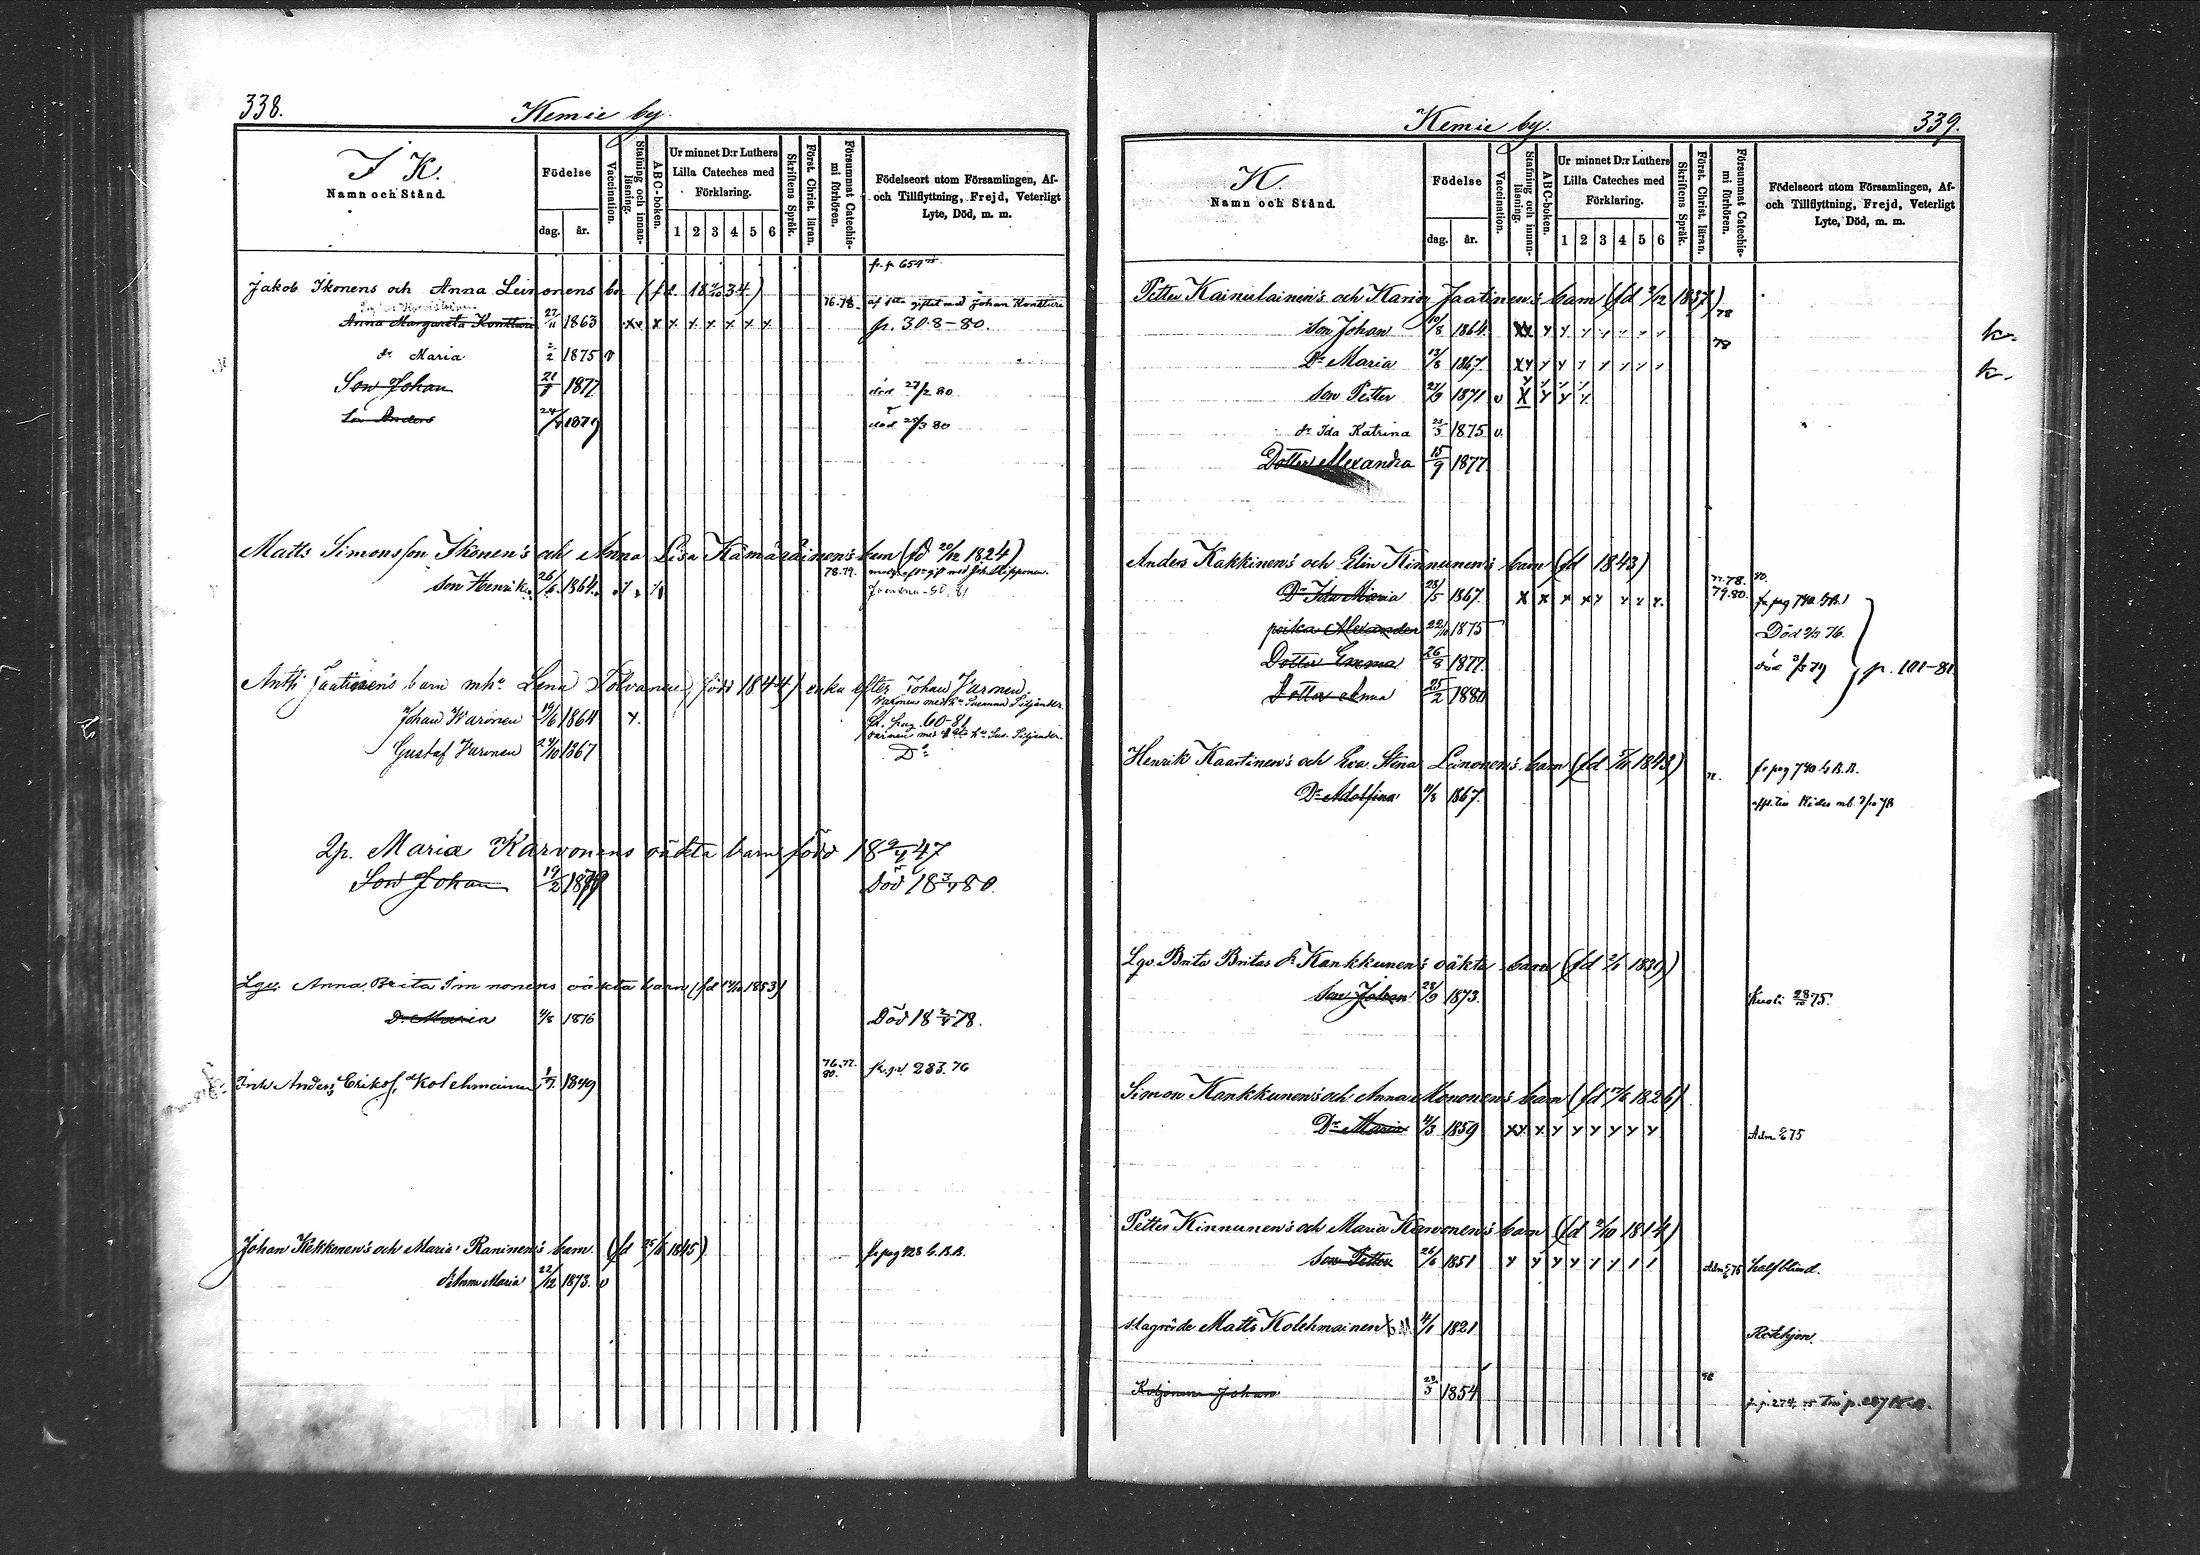 338.
Kemie by.
I K.
Namn och Stånd.
Födelse
dag.
år.
Vaccination.
Stafning och innanläsning.
ABC-boken.
Ur minnet D:r Luthers
Lilla Cateches med
Förklaring.
1 2 3 4 5 6
Skriftens Språk.
Först. Christ. läran.
Försummat Catechismi förhören.
Födelseort utom Församlingen, Af-
och Tillflyttning, Frejd, Veterligt
Lyte, Död, m. m.
Jakob Ikonens och Anna Leinonens bn
76.78.
Anna Margareta Konttinen 27/11 1863 x x x x x x x x
fr. 308-80.
dr Maria 2/2 1875 v
Son Johan 21/8 1877
död 27/2 80
Son Anders 1879
död 80
Matts Simonsson Ikonen's och Anna Lisa Kämäräinen's barn (fd 20/12 1824)
78.79.
son Henrik 26/6 1864
Antti Jaatinen's barn mh. Lena Tolvanen, född 1844 enka efter Johan Varonen
Johan Waronen 19/6 1864
Gustaf Varonen 24/10 1867
Do
Maria Karvonens oäkta barn född 18 9/4 47
Son Johan 19/2 1879
Död 18 3/7 80.
Anna Brita Immonens oäkta barn, 1853)
D. Maria 4/8 1876
Död 18 78.
Anders Eriksf. Kolehmainen 1/7 1849
76.77.
80.
fr. p. 283.76
Johan Kekkonen's och Maria Raninen's barn. (fd 25/8 1845)
fr pag 423 b. B.B.
dr Anna Maria 22/12 1873. v
Kemie by.
339.
K.
Namn och Stånd.
Födelse
dag.
år.
Vaccination.
Stafning och innanläsning.
ABC-boken.
Ur minnet D:r Luthers
Lilla Cateches med
Förklaring.
1 2 3 4 5 6
Skriftens Språk.
Först. Christ. läran.
Försummat Catechismi förhören.
Födelseort utom Församlingen, Af-
och Tillflyttning, Frejd, Veterligt
Lyte, Död, m. m.
Petter Kainulainen's och Karin Jaatinen's barn (fd 2/12 1837)
78
son Johan 10/8 1864
k.
78
Dr Maria 13/8 1867.
k.
son Petter 27/9 1871 v
dr Ida Katrina 23/5 1875 v.
Dotter Alexandra 15/9 1877
Anders Kakkinen's och Elin Kinnunen's barn (fd 1843)
77.78.
79.80.
Dr Ida Maria 23/5 1867.
fr pag 740 b B.
poika Alexander 22/10 1875
Död 76.
Dotter Emma 26/8 1877.
död 3/5 79
p. 101-81
Dotter Anna 25/2 1880
Henrik Kaartinen's och Eva Stina Leinonen's barn (fd 1843)
fr pag 740 b B.B.
Dr Adolfina 1867.
Lgo Brita Britas dr Kankkunen's oäkta barn (fd 1839)
son Johan 28/9 1873.
Kuoli 28/10 75.
Simon Kankkunen's och Anna Mononen's barn (fd 17/6 1826)
Dr Maria 4/3 1859
Adm 75
Petter Kinnunen's och Maria Karvonen's barn (fd 2/10 1814)
son Petter 26/6 1851
Adm 75
halfblind.
slagrörde Matts Kolehmainen 4/1 1821
Rotehjon.
Koljonen Johan 23/5 1854